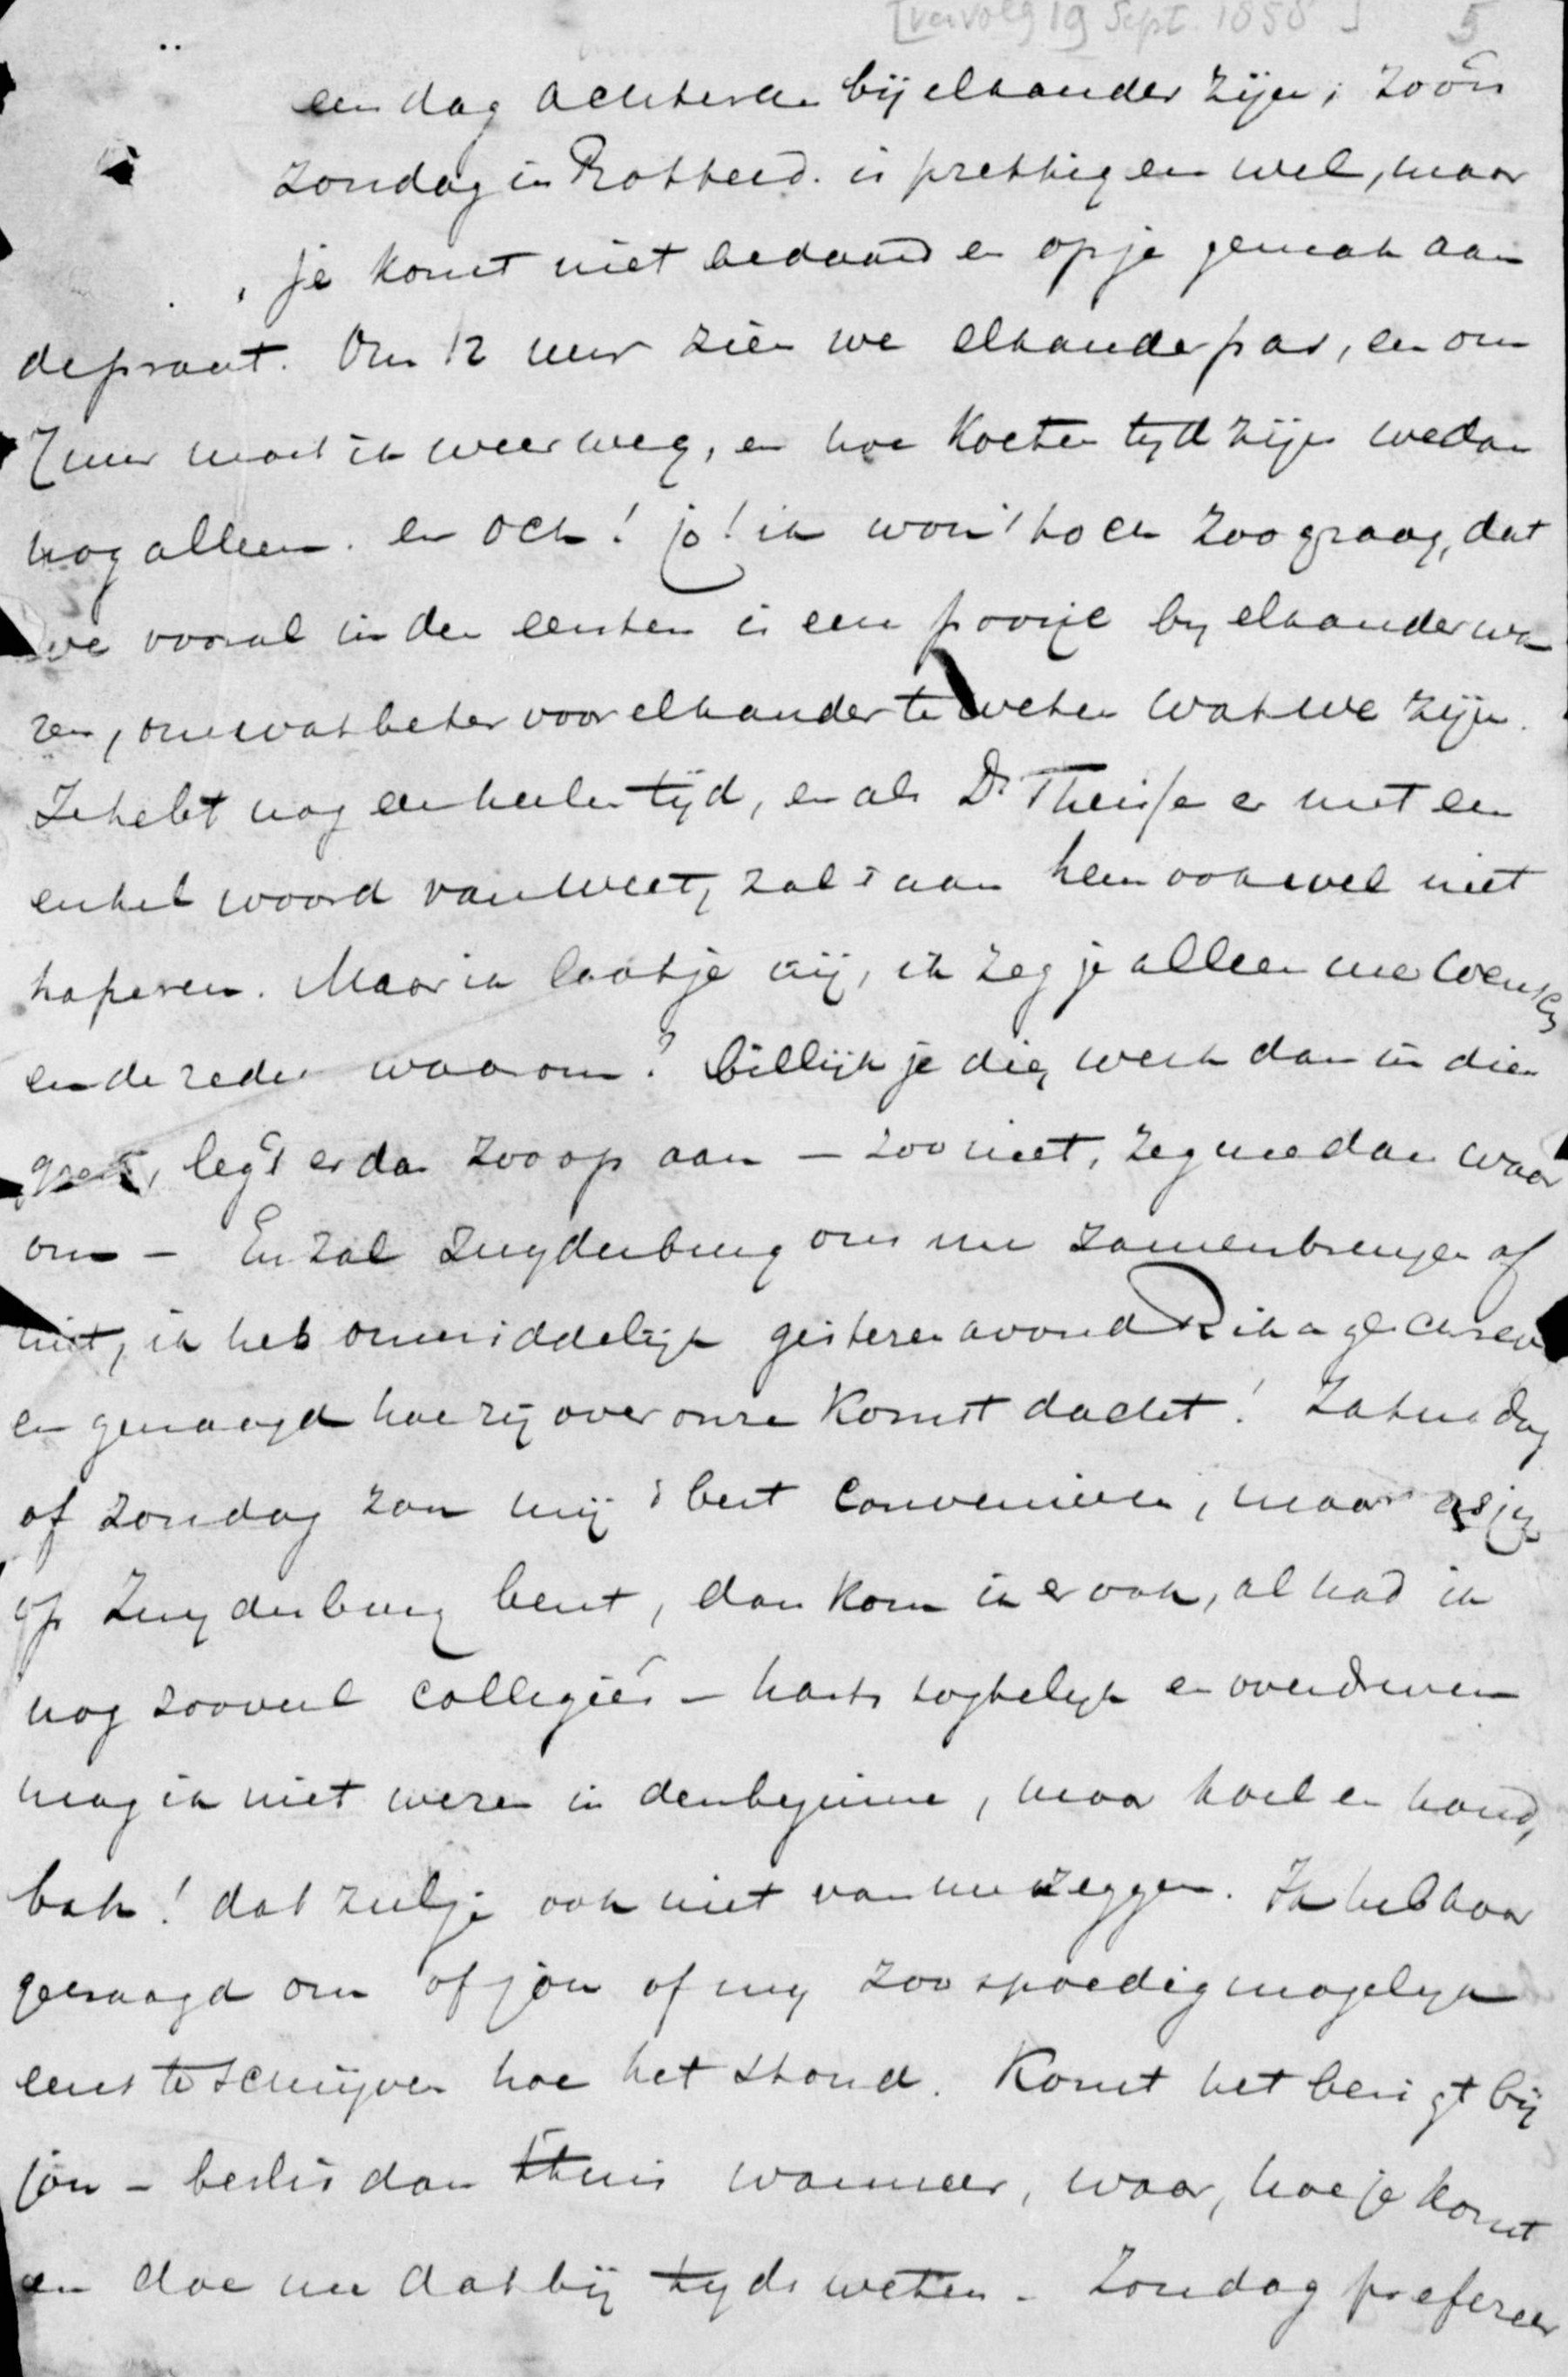 [vervolg 19 Sept. 1858] 5
een dag achteren bij elkander zijn; zoo'n
Zondag in Rotterd. is prettig en wel, maar
je komt niet bedaard en op je gemak aan
de praat. Om 12 uur zien we elkander pas, en om
7 uur moet ik weer weg, en hoe korten tyd zijn we dan
nog alleen. en och! jo! ik wou 't toch zoo graag, dat
we vooral in den eersten is een poosje by elkander wa
ren, om wat beter voor elkander te weten wat we zijn.
Je hebt nog een heelen tijd, en als Ds Theisse er met een
enkel woord van weet, zal 't aan hem ook wel niet
haperen. Maar ik laat je vrij, ik zeg je alleen me wensch
en de reden waarom? billijk je die, werk dan in dien
geest, leg 't er dan zoo op aan – zoo niet, zeg me dan waar
om – En zal Zuyderburg ons nu zamenbrengen of
niet, ik heb onmiddelijk gisteren avond Rika geschreven
en gevraagd hoe zij over onze komst dacht! Zaturdag
of Zondag zou mij 't best convenieren, maar als je
op Zuyderburg bent, dan kom ik er ook, al had ik
nog zooveel collegie's – hartstogtelyk en overdreven
mag ik niet wezen in den beginne, maar koel en koud,
bah! dat zulje ook niet van me zeggen. Ik heb haar
gevraagd om of jou of my zoo spoedig mogelyk
eens te schrijven hoe het stond. Komt het berigt bij
jou – beslis dan thuis wanneer, waar, hoe je komt
en doe me dat bij tyds weten – Zondag prefereer